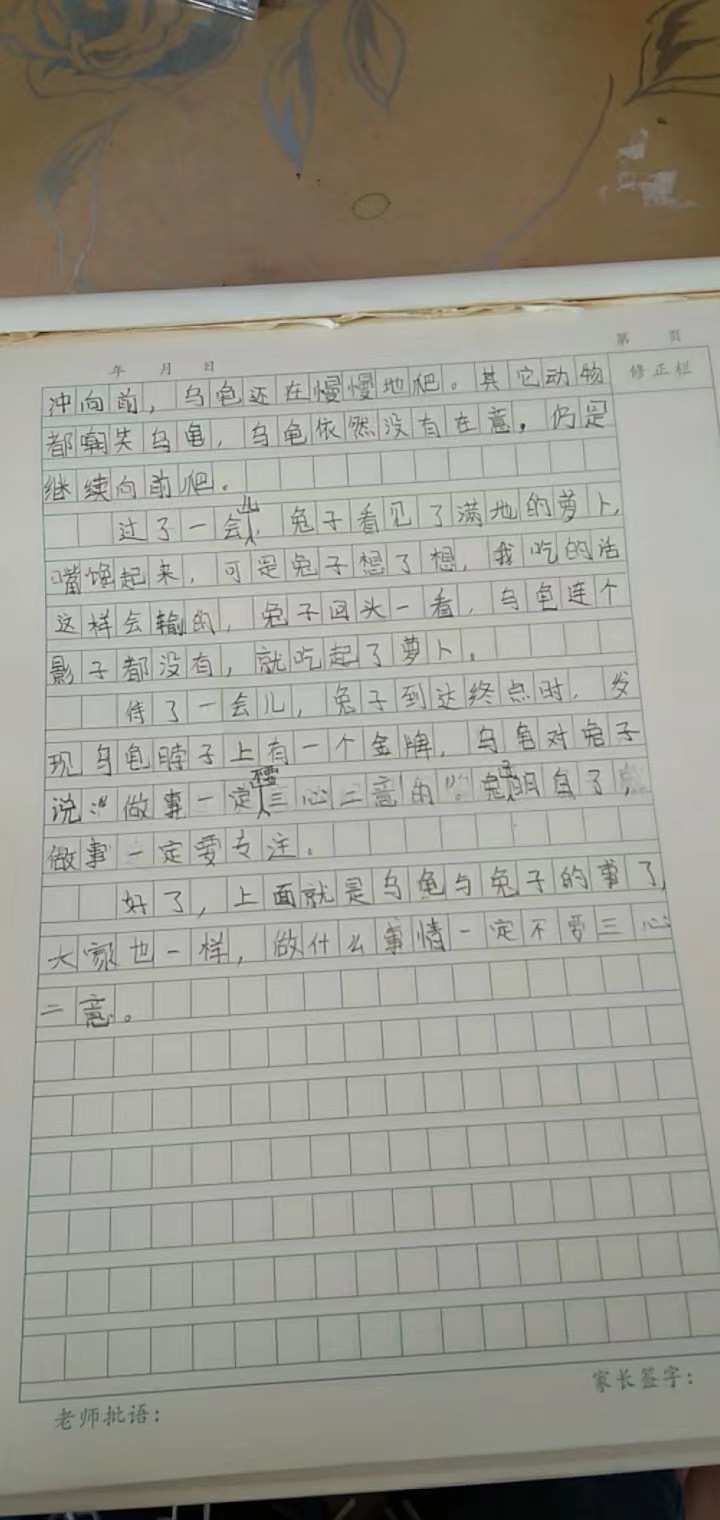 第 页
年 月 日
修正栏
冲向前，乌龟还在慢慢地爬。其它动物
都嘲笑乌龟，乌龟依然没有在意，仍是
继续向前爬。
过了一会儿，兔子看见了满地的萝卜，
嘴馋起来，可是兔子想了想，我吃的话
这样会输的，兔子回头一看，乌龟连个
影子都没有，就吃起了萝卜。
待了一会儿，兔子到达终点时，发
现乌龟脖子上有一个金牌，乌龟对兔子
说：“做事一定不要三心二意的”。兔子明白了，
做事一定要专注。
好了，上面就是乌龟与兔子的事了，
大家也一样，做什么事情一定不要三心
二意。
家长签字：
老师批语：